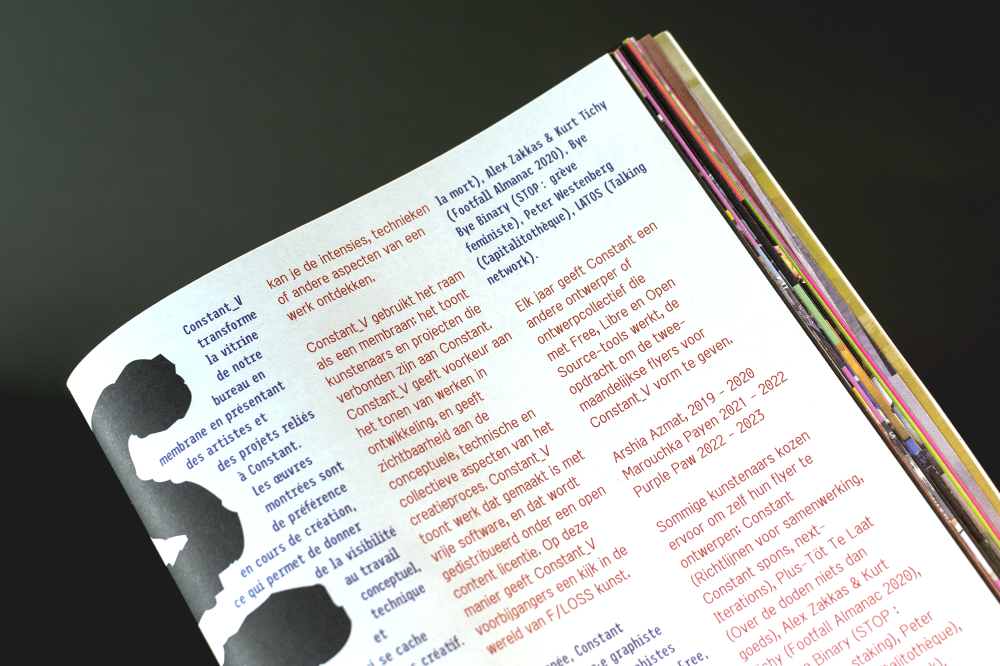 Constant_V
transforme
la vitrine
de notre
bureau en
membrane en présentant
des artistes et
des projets reliés
à Constant.
les œuvres
montrées sont
de préférence
en cours de création,
ce qui permet de donner
de la visibilité
au travail
conceptuel,
technique
et
se cache
créatif.
kan je de intensies, technieken
of andere aspecten van een
werk ontdekken.
Constant_V gebruikt het raam
als een membraan: het toont
kunstenaars en projecten die
verbonden zijn aan Constant.
Constant_V geeft voorkeur aan
het tonen van werken in
ontwikkeling, en geeft
zichtbaarheid aan de
conceptuele, technische en
collectieve aspecten van het
creatieproces. Constant_V
toont werk dat gemaakt is met
vrije software, en dat wordt
gedistribueerd onder een open
content licentie. Op deze
manier geeft Constant_V
voorbijgangers een kijk in de
wereld van F/LOSS kunst.
Constant
graphiste
la mort), Alex Zakkas & Kurt Tichy
(Footfall Almanac 2020), Bye
Bye Binary (STOP : grève
feministe), Peter Westenberg
(Capitalitothèque), LATOS (Talking
network).
Elk jaar geeft Constant een
andere ontwerper of
ontwerpcollectief die
met Free, Libre en Open
Source-tools werkt, de
opdracht om de twee-
maandelijkse flyers voor
Constant_V vorm te geven.
Arshia Azmat, 2019 - 2020
Marouchka Payen 2021 - 2022
Purple Paw 2022 - 2023
Sommige kunstenaars kozen
ervoor om zelf hun flyer te
ontwerpen: Constant
(Richtlijnen voor samenwerking,
Constant spons, next-
Iterations), Plus-Tôt Te Laat
(Over de doden niets dan
goeds), Alex Zakkas & Kurt
(Footfall Almanac 2020),
Binary (STOP :
staking), Peter